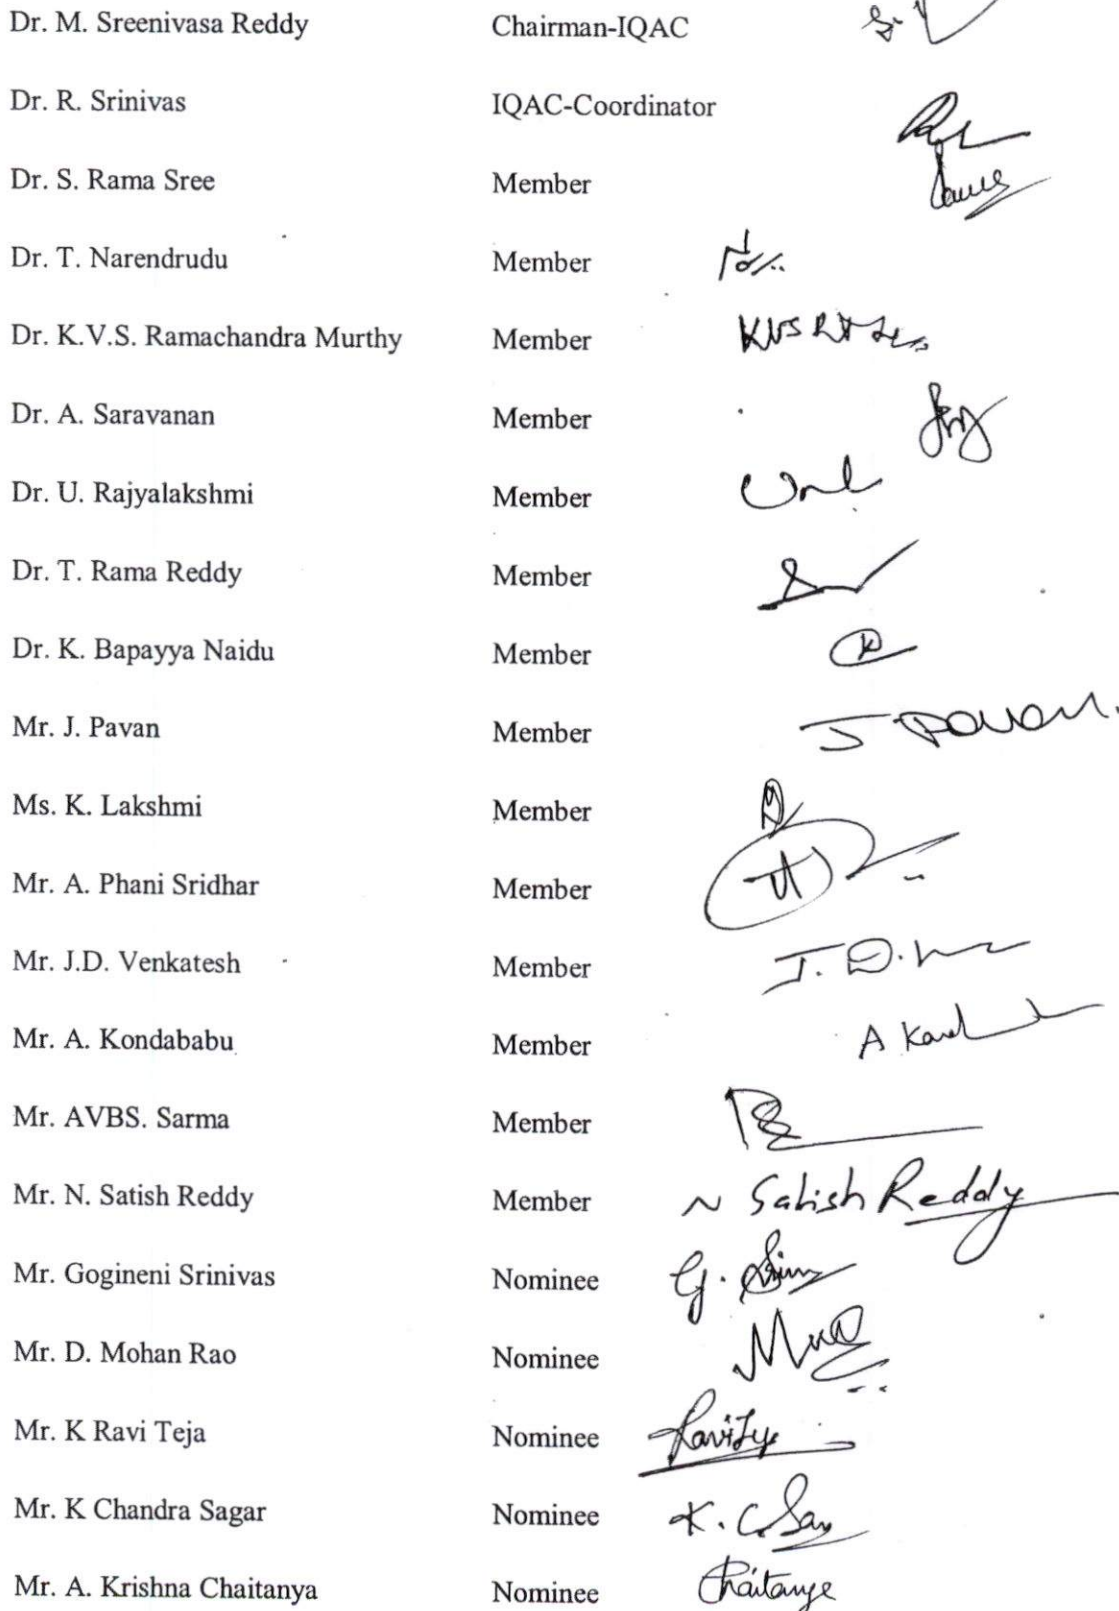 Dr. M. Sreenivasa Reddy Chairman-IQAC
Dr. R. Srinivas IQAC-Coordinator
Dr. S. Rama Sree Member
Dr. T. Narendrudu Member
Dr. K.V.S. Ramachandra Murthy Member
Dr. A. Saravanan Member
Dr. U. Rajyalakshmi Member
Dr. T. Rama Reddy Member
Dr. K. Bapayya Naidu Member
Mr. J. Pavan Member J Pavan.
Ms. K. Lakshmi Member
Mr. A. Phani Sridhar Member
Mr. J.D. Venkatesh Member J. D.
Mr. A. Kondababu Member A
Mr. AVBS. Sarma Member
Mr. N. Satish Reddy Member N Satish Reddy
Mr. Gogineni Srinivas Nominee G.
Mr. D. Mohan Rao Nominee
Mr. K Ravi Teja Nominee
Mr. K Chandra Sagar Nominee K. C.
Mr. A. Krishna Chaitanya Nominee Chaitanya